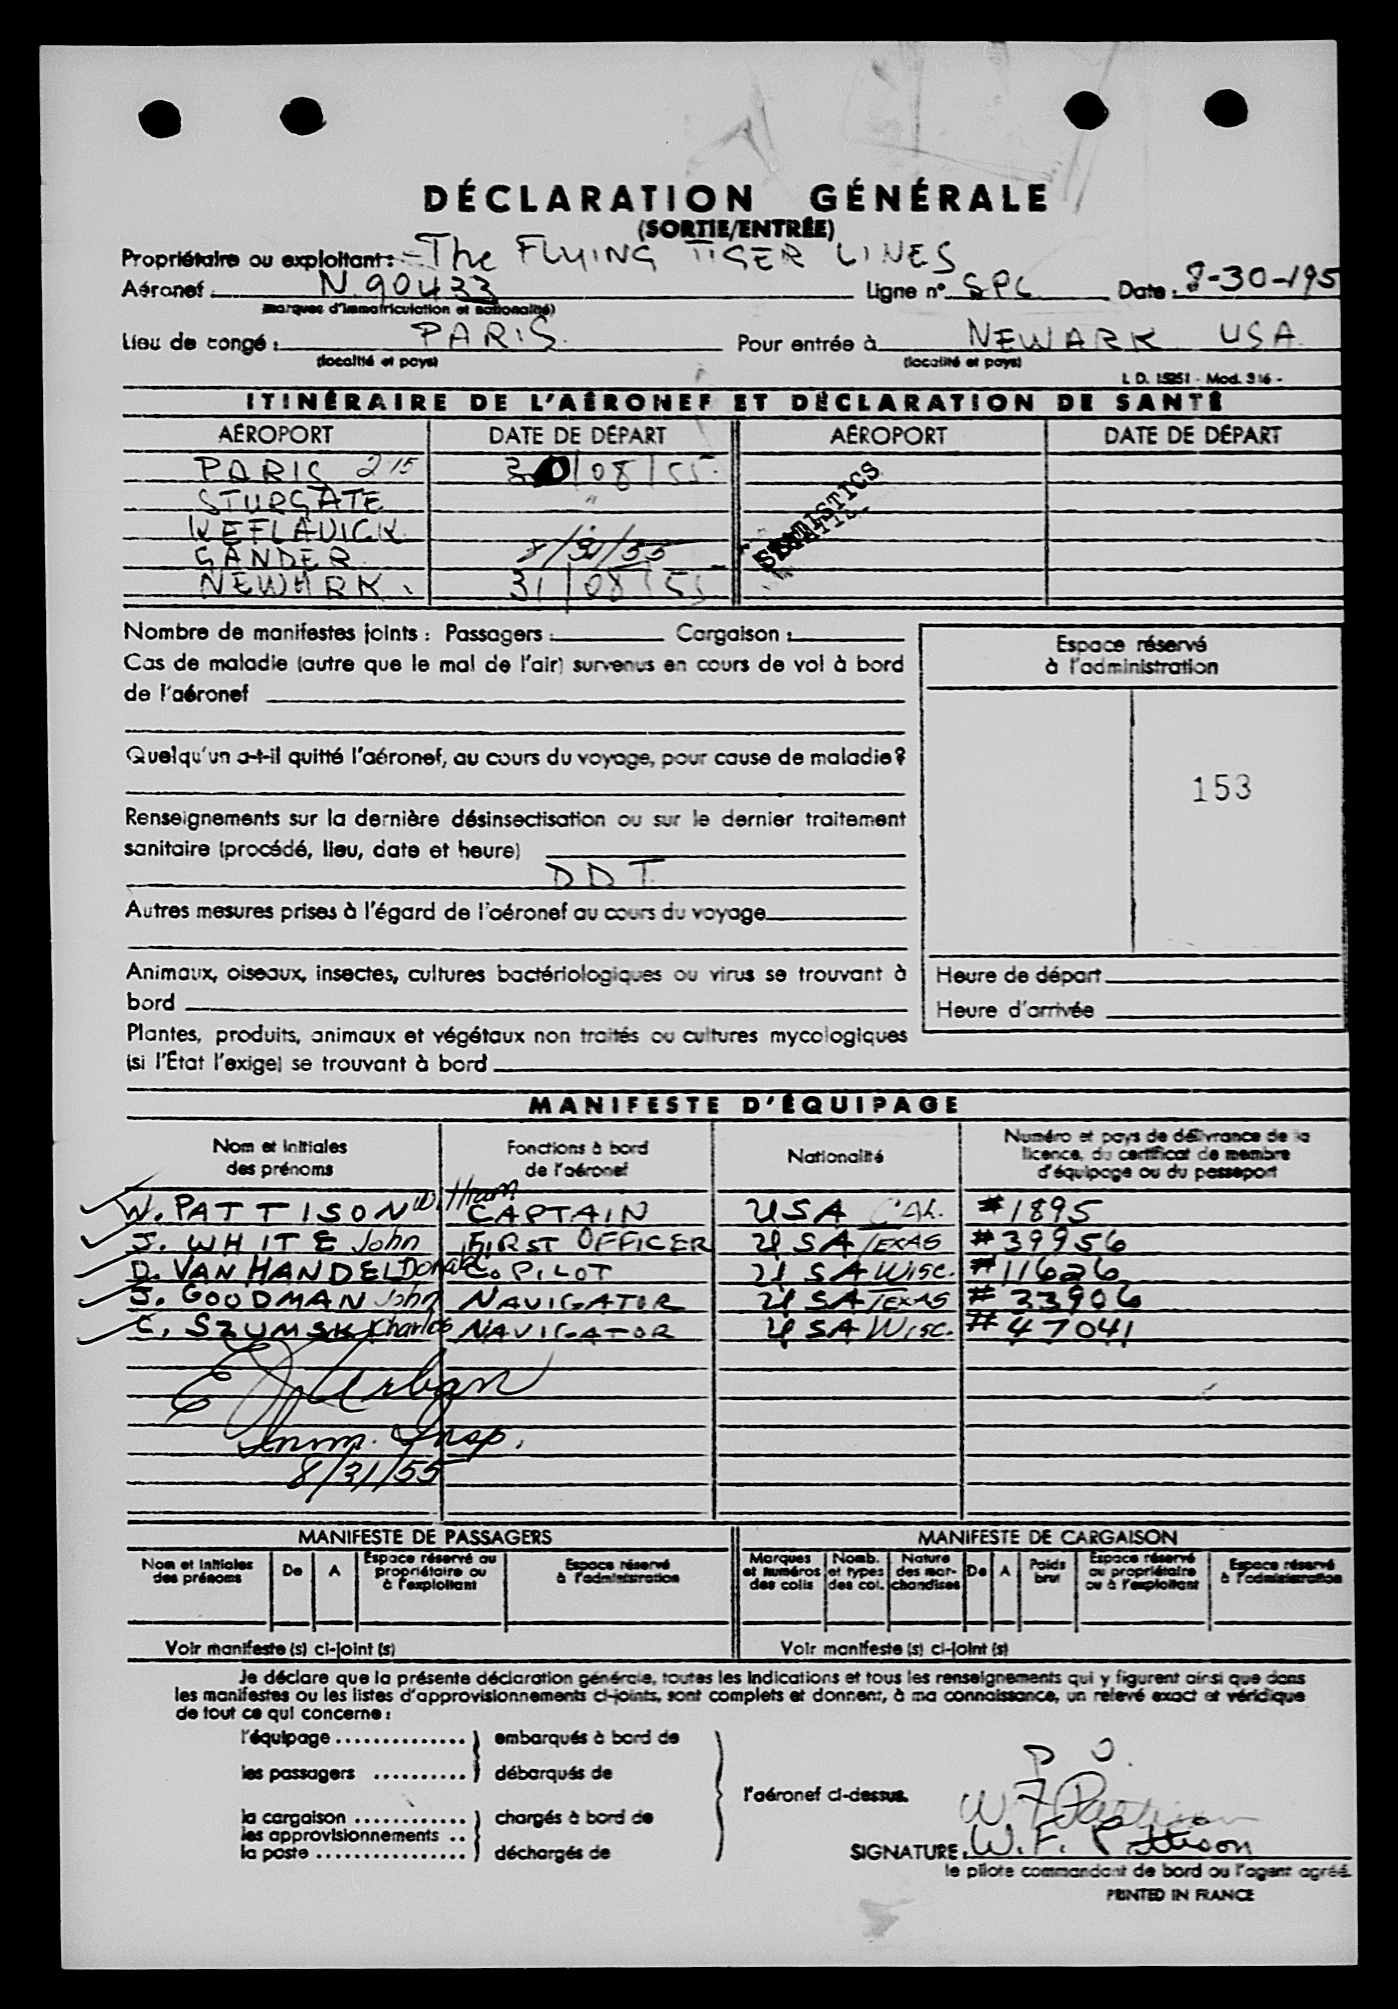 DÉCLARATION GÉNÉRALE
(SORTIE/ENTRÉE)
Propriétaire ou exploitant : The FLYING TIGER LINES
Aéronef N 90433 Ligne n° SPC Date : 8-30-195
(marques d'immatriculation et nationalité)
Lieu de congé : PARIS. Pour entrée à NEWARK USA
(localité et pays) (localité et pays)
I. D. 15251 - Mod. 316 -
ITINÉRAIRE DE L'AÉRONEF ET DÉCLARATION DE SANTÉ
AÉROPORT DATE DE DÉPART AÉROPORT DATE DE DÉPART
PARIS 215 30/08/55.
STURGATE "
KEFLAVICK
GANDER 8/31/55
NEWARK. 31/08/55
STATISTICS
Nombre de manifestes joints : Passagers : Cargaison :
Cas de maladie (autre que le mal de l'air) survenus en cours de vol à bord
de l'aéronef
Espace réservé
à l'administration
Quelqu'un a-t-il quitté l'aéronef, au cours du voyage, pour cause de maladie ?
153
Renseignements sur la dernière désinsectisation ou sur le dernier traitement
sanitaire (procédé, lieu, date et heure)
DDT
Autres mesures prises à l'égard de l'aéronef au cours du voyage
Animaux, oiseaux, insectes, cultures bactériologiques ou virus se trouvant à
bord
Heure de départ
Heure d'arrivée
Plantes, produits, animaux et végétaux non traités ou cultures mycologiques
(si l'État l'exige) se trouvant à bord
MANIFESTE D'ÉQUIPAGE
Nom et initiales des prénoms Fonctions à bord de l'aéronef Nationalité Numéro et pays de délivrance de la licence, du certificat de membre d'équipage ou du passeport
W. PATTISON William CAPTAIN USA CAL. #1895
J. WHITE John FIRST OFFICER USA TEXAS #39956
D. VAN HANDEL Donald CO PILOT USA WISC. #11626
J. GOODMAN John NAVIGATOR USA TEXAS #33906
C. SZUMSKI Charles NAVIGATOR USA WISC. #47041
E J Urban
Imm. Insp.
8/31/55
MANIFESTE DE PASSAGERS MANIFESTE DE CARGAISON
Nom et initiales des prénoms De A Espace réservé au propriétaire ou à l'exploitant Espace réservé à l'administration Marques et numéros des colis Nomb. et types des col. Nature des marchandises De A Poids brut Espace réservé au propriétaire ou à l'exploitant Espace réservé à l'administration
Voir manifeste (s) ci-joint (s) Voir manifeste (s) ci-joint (s)
Je déclare que la présente déclaration générale, toutes les indications et tous les renseignements qui y figurent ainsi que dans
les manifestes ou les listes d'approvisionnements ci-joints, sont complets et donnent, à ma connaissance, un relevé exact et véridique
de tout ce qui concerne :
l'équipage .............. } embarqués à bord de
les passagers .......... } débarqués de
l'aéronef ci-dessus.
la cargaison ............ } chargés à bord de
les approvisionnements ..
la poste ................ } déchargés de
P O.
W F Pattison
SIGNATURE : W. F. Pattison
le pilote commandant de bord ou l'agent agréé.
PRINTED IN FRANCE